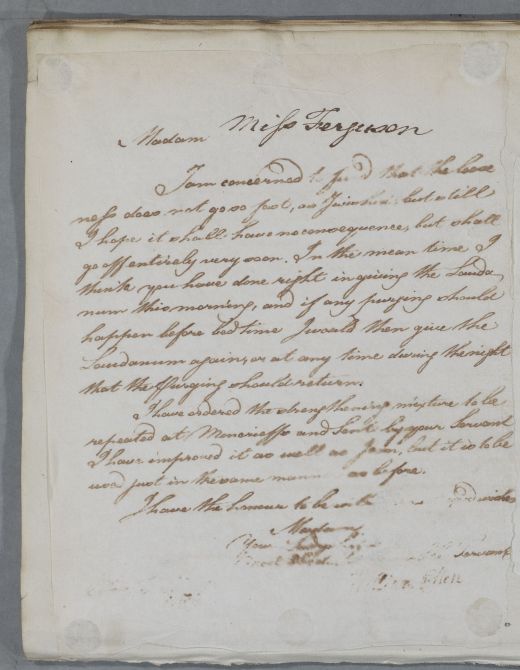 Miss Ferguson
Madam
I am concerned to find that the loose
ness does not go so pot, as I wish; but still
I hope it shall have no consequence, but shall
go off entirely very soon. In the mean time I
think you have done right in giving the Lauda
num this morning, and if any purging should
happen before bed time I would then give the
Laudanum again, or at any time during the night
that the Purging should return.
I have ordered the strengthening mixture to be
repeated at Moncrieffs and sent by your Servant
I have improved it as well as I can, but it is to be
used just in the same manner as before.
I have the honour to be with wishes
Madam
Your
most Servant